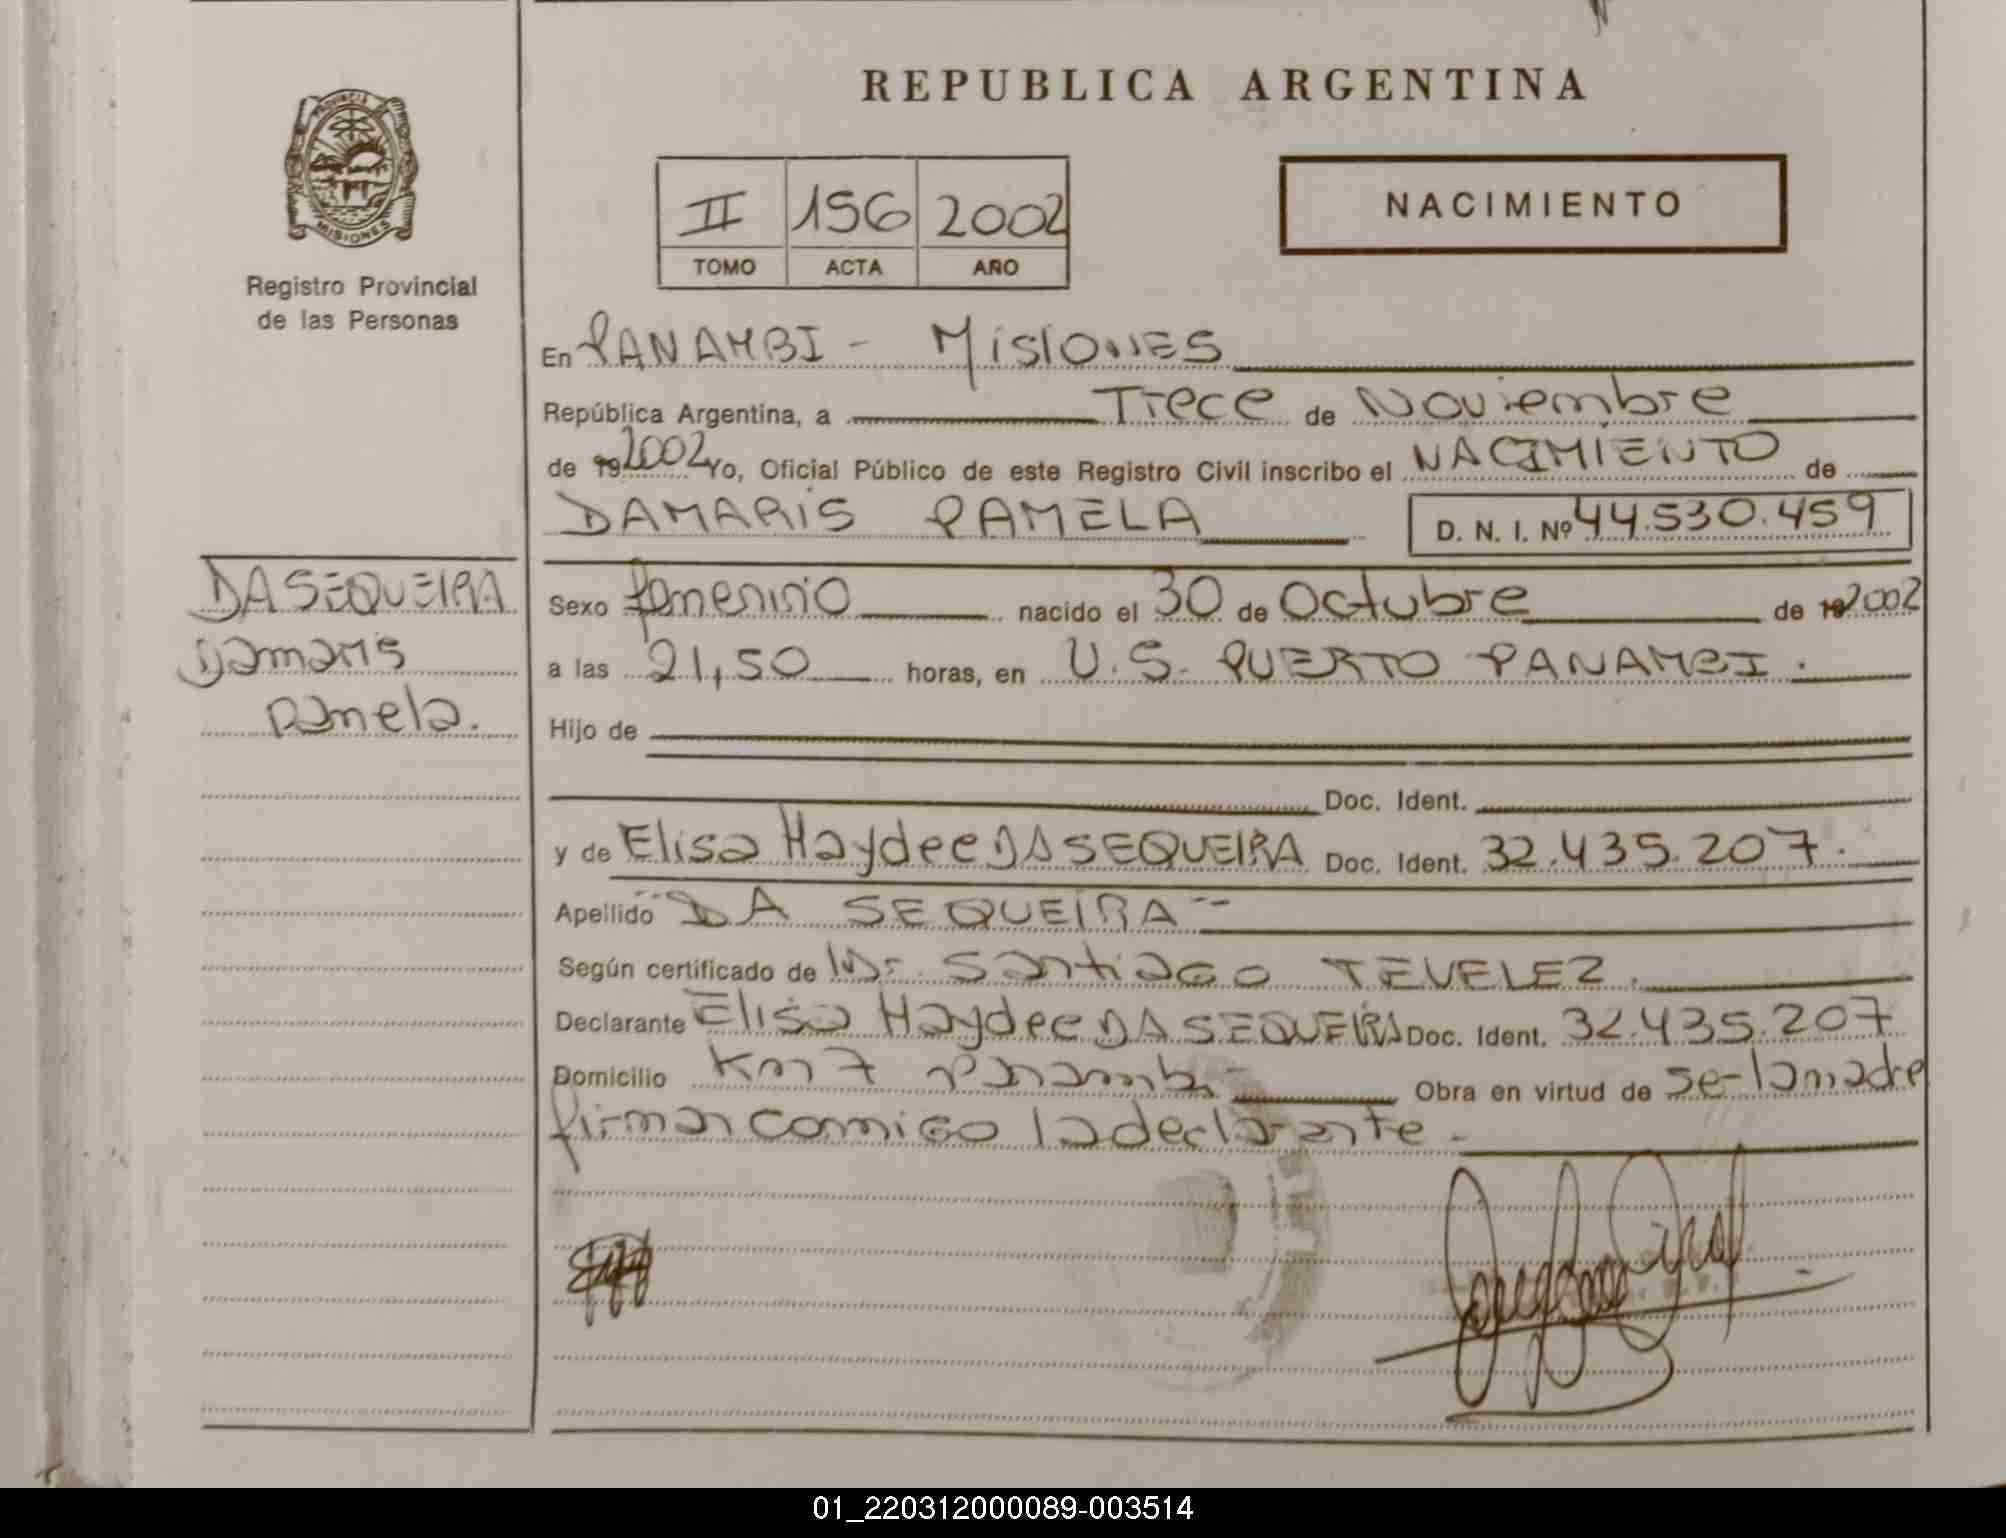 REPUBLICA ARGENTINA
PROVINCIA
MISIONES
Registro Provincial
de las Personas
II 156 2002
TOMO ACTA AÑO
NACIMIENTO
En PANAMBI - MisIONES
República Argentina, a Trece de Noviembre
de 19 2002 Yo, Oficial Público de este Registro Civil inscribo el NACIMIENTO de
DAMARIS PAMELA D. N. I. Nº 44.530.459
DA SEQUEIRA
Damaris
Pamela.
Sexo femenino nacido el 30 de Octubre de 19 2002
a las 21,50 horas, en U.S. PUERTO PANAMBI.
Hijo de
Doc. Ident.
y de Elisa Haydee DA SEQUEIRA Doc. Ident. 32.435.207.
Apellido "DA SEQUEIRA"
Según certificado de Dr. Santiago TEVELEZ.
Declarante Elisa Haydee DA SEQUEIRA Doc. Ident. 32.435.207
Domicilio Km 7 Panambi- Obra en virtud de ser la madre
firman comigo la declarante.
01_220312000089-003514